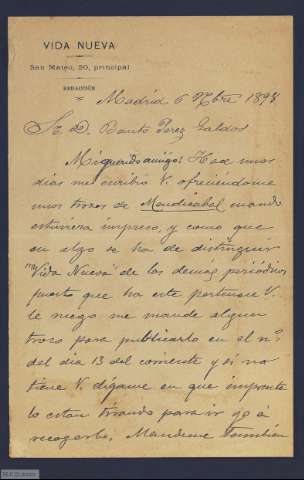 VIDA NUEVA
San Mateo, 20, principal
REDACCIÓN
Madrid 6 Nbre 1898
Sr. D. Benito Perez Galdos
Mi querido amigo: Hace unos
dias me escribio V. ofreciendome
unos trozos de Mendizabal cuando
estuviera impreso, y como que
en algo se ha de distinguir
"Vida Nueva" de los demas periódicos
puesto que ha este pertenece V.
le ruego me mande algun
trozo para publicarlo en el nº
del dia 13 del corriente y si no
tiene V. digame en que imprenta
lo estan tirando para ir yo á
recogerlo. Mandeme tambien